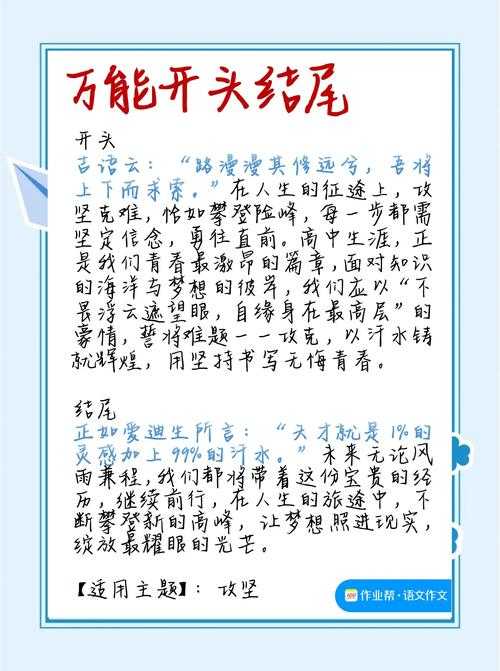 万能开头结尾
开头
古语云：“路漫漫其修远兮，吾将
上下而求索。”在人生的征途上，攻
坚克难，恰如攀登险峰，每一步都需
坚定信念，勇往直前。高中生涯，正
是我们青春最激昂的篇章，面对知识
的海洋与梦想的彼岸，我们应以“不
畏浮云遮望眼，自缘身在最高层”的
豪情，誓将难题一一攻克，以汗水铸
就辉煌，用坚持书写无悔青春。
结尾
正如爱迪生所言：“天才就是1%的
灵感加上99%的汗水。”未来无论风
雨兼程，我们都将带着这份宝贵的经
历，继续前行，在人生的旅途中，不
断攀登新的高峰，让梦想照进现实，
绽放最耀眼的光芒。
【适用主题】：攻坚
作业帮·语文作文